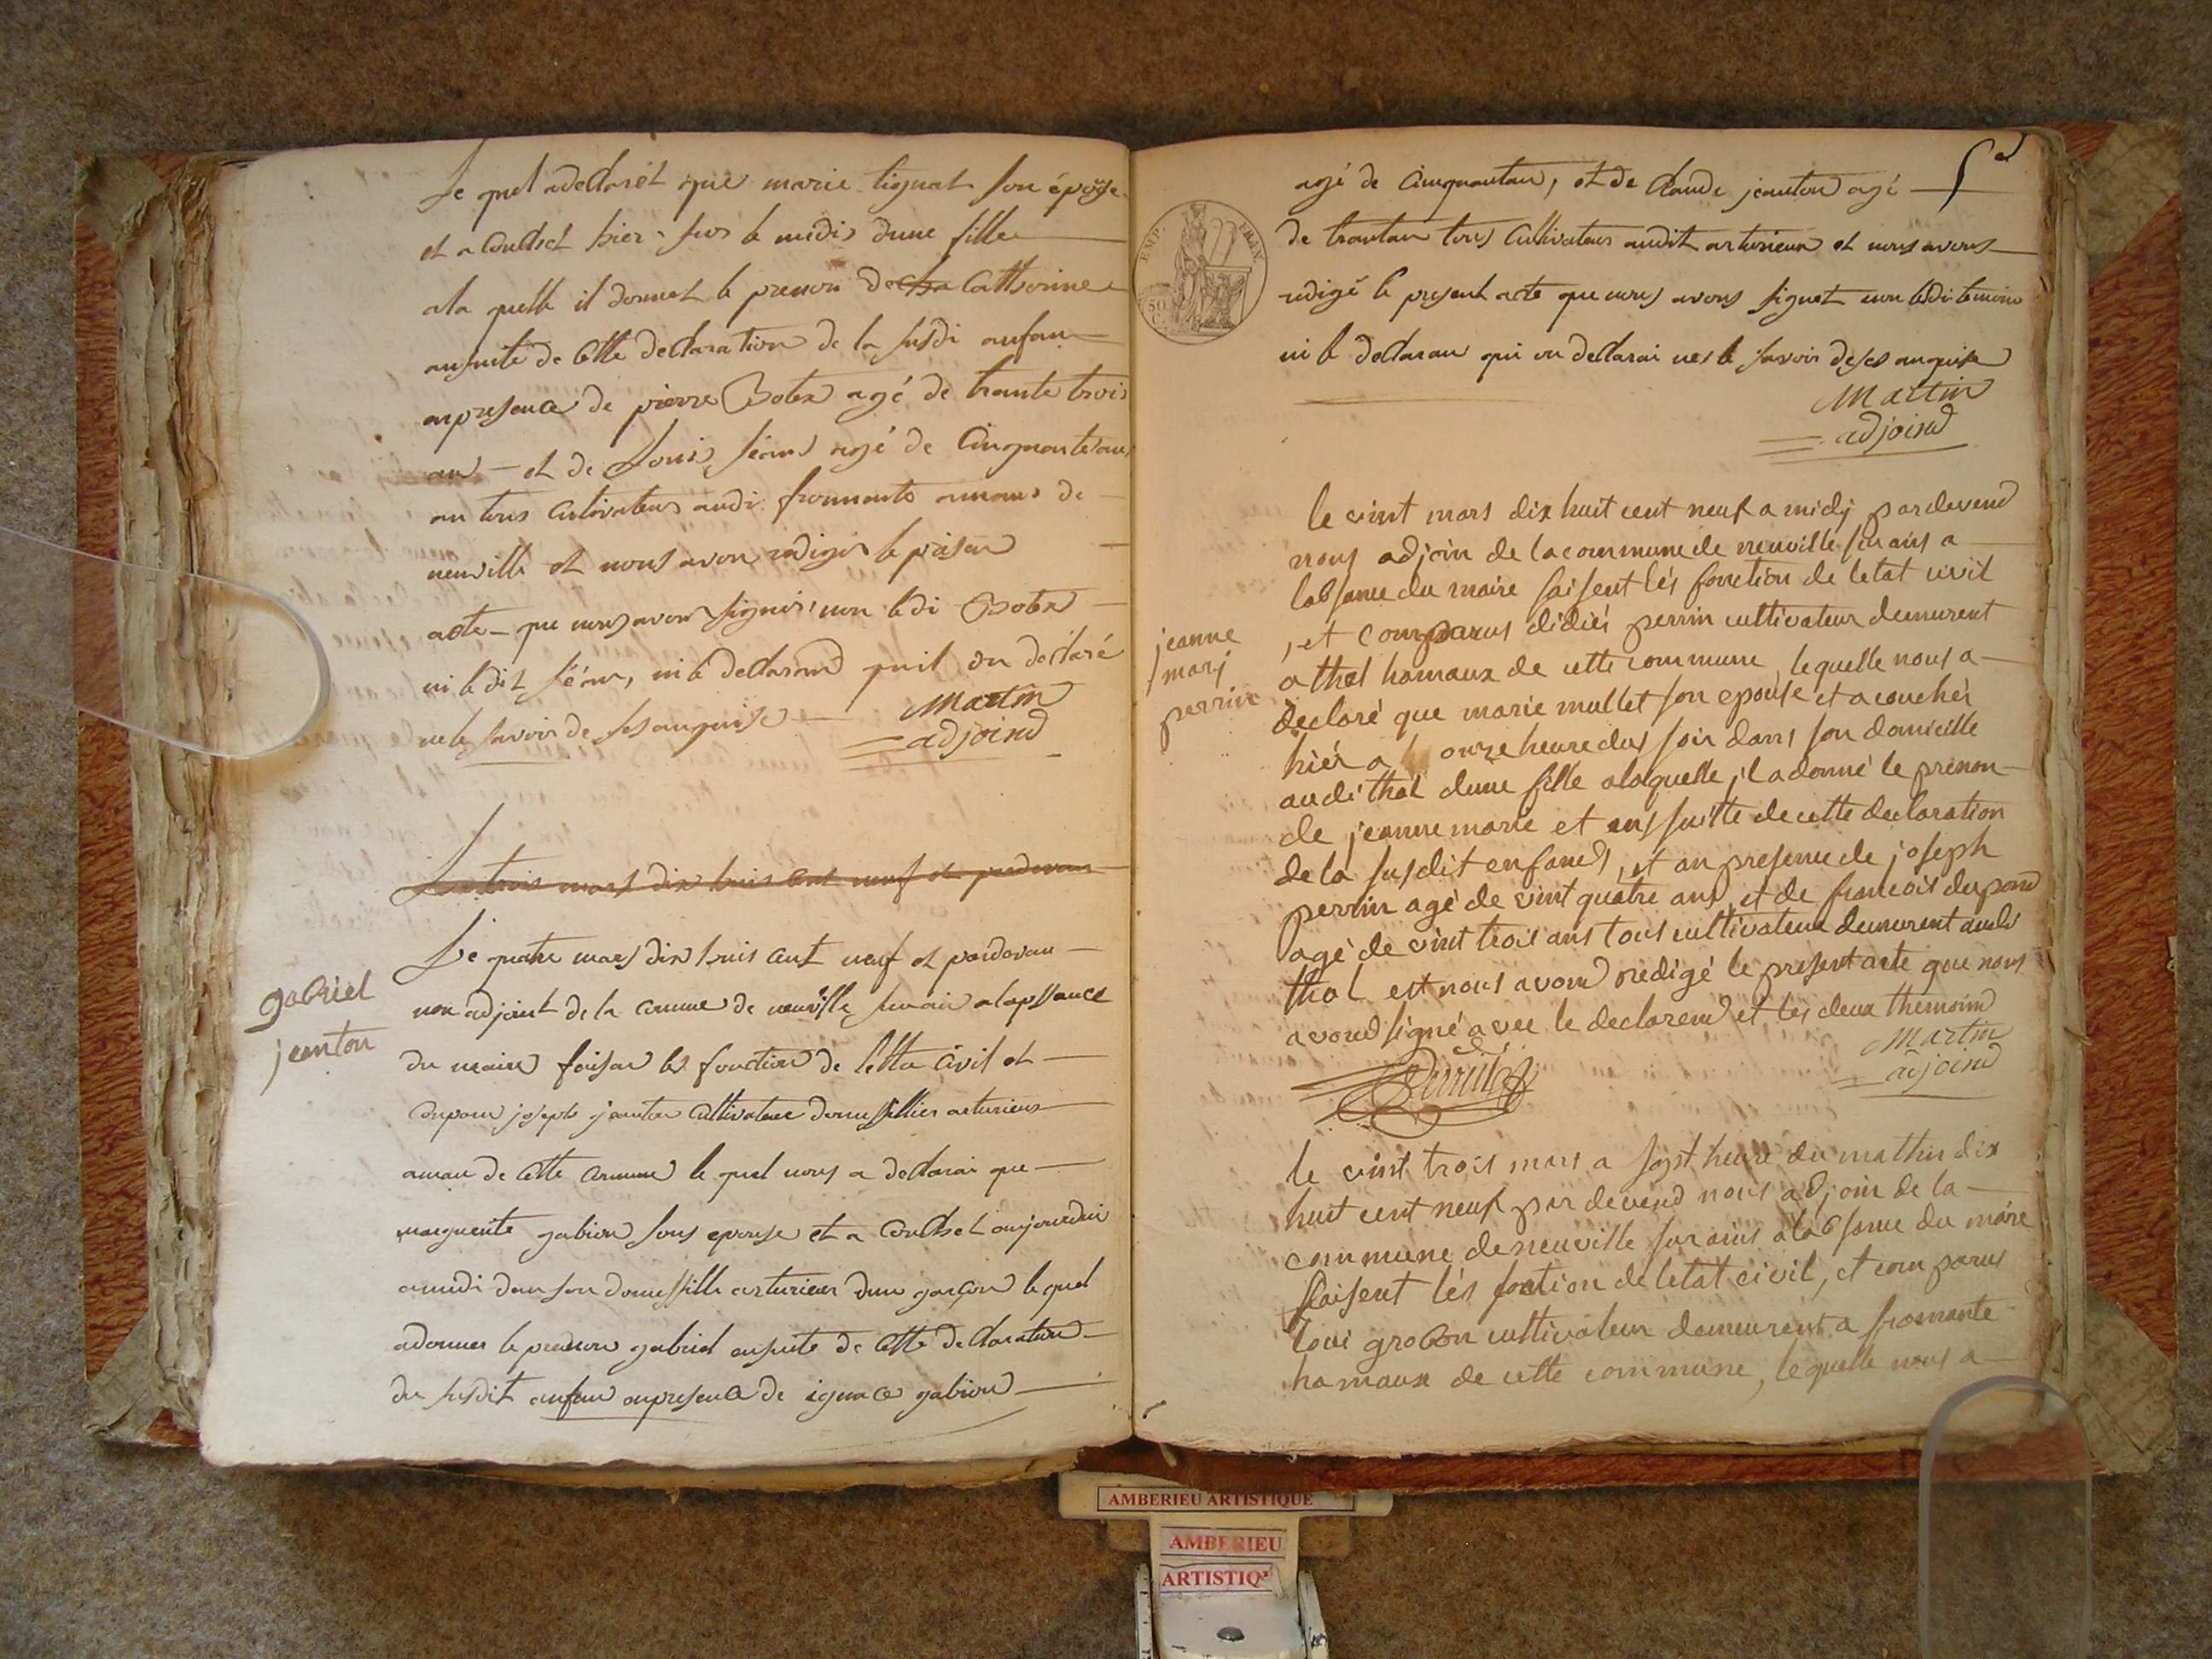 Le quel a declarét que marie tignat son épouse
et a Couchet hier sur le midis dune fille
a la quelle il donnet le prenom de Catherine
ansuite de Cette declaration de la susdi anfan
anpresence de pierre Botex agé de trante trois
ans et de Louis féans agé de Cinquante ans
an tous Cultivateurs audi fromante amaus de
neuville et nous avon redigér le présan
acte que nous avon signer, non ledi Botex
ni ledit féans, ni le declarand quil on declaré
ne le savoir de ses anquise
Martin
adjoind
Le trois mars dix huis cent neuf et pardevan
gabriel
jeanton
Le quatre mars dix huis cent neuf et pardevan
nou adjoint de la comune de neuville sur ain a lapssance
du maire faisan les fonction de letta Civil et
Conparu joseph jeanton Cultivateur domessillier a rturieux
amau de Cette Comune le quel nous a declarai que
marguerite gabion sous epouse et a Couchet aujourdui
a midi dan son domessille a rturieux dun garçon le quel
a donner le prenom gabriel ansuite de Cette declaration
du susdit anfan anpresence de ignace gabion
5e
EMP. FRAN.
50 C.
agé de Cinquantan, et de Claude jeanton agé
de trantan tous Cultivateurs audit arturieux et nous avons
redigé le present acte que nous avons signet non ledi temoins
ni le declaran qui on declarai nes le savoir de ses anquise
Martin
adjoind
jeanne
marj
perrin
le vint mars dix huit cent neuf a midj pardevend
nous adjoin de la commune de neuville sur ains a
labsance du maire faisent lés fonction de letat civil
, et Comparus didiér perrin cultivateur demurent
a thol hamaux de cette commune, lequelle nous a
declaré que marie mullet son epouse et a couchér
hiér a onze heure du soir dans son domicille
audi thol dune fille alaquelle jl a donné le prénon
de jeanne marie et ensuitte de cette declaration
de la susdit enfand, et an presence de joseph
perrin agé de vint quatre ans, et de francois dupond
agé de vint trois ans tous cultivateur demurent audi
thol est nous avond redigé le present acte que nous
avond signé avec le declarend et les deux themoind
Martin
adjoind
Perrin
le vint trois mars a sept heure du mathin dix
huit cent neuf par devend nous adjoin de la
commune de neuville sur ains a labsance du maire
faisent lés fontion de letat civil, et comparus
loui grobon cultivateur demeurent a fromante
hamaux de cette commune, lequelle nous a
AMBERIEU ARTISTIQUE
AMBERIEU
ARTISTIQ